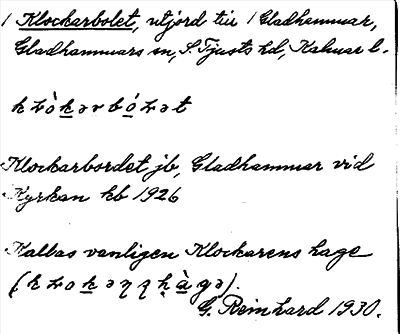 1 Klockarbolet, utjord till 1 Gladhammar,
Gladhammars sn, S. Tjusts hd, Kalmar l.
Klockarbordet jb, Gladhammar vid
Kyrkan kb 1926
Kallas vanligen Klockarens hage
G. Reinhard 1930.